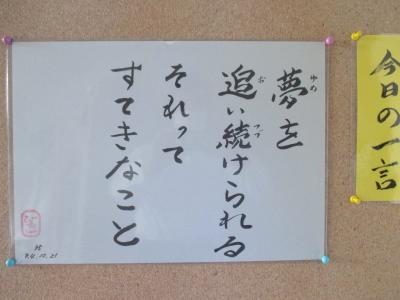 今日の一言
夢を
追い続けられる
それって
すてきなこと
ゆめ
お
つづ